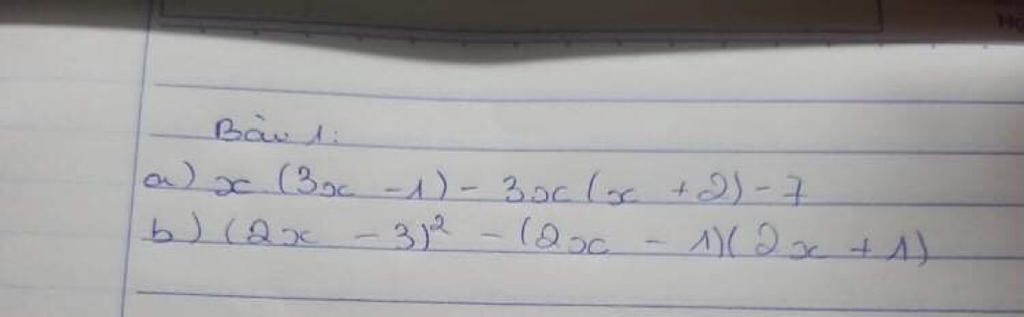 Bài 1:
a) x (3x - 1) - 3x (x + 2) - 7
b) (2x - 3)² - (2x - 1)(2x + 1)